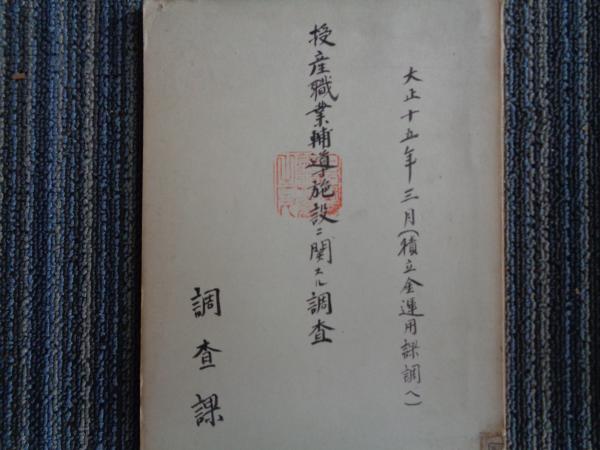 大正十五年三月(積立金運用課調ヘ)
授産職業輔導施設ニ関スル調査
調査課